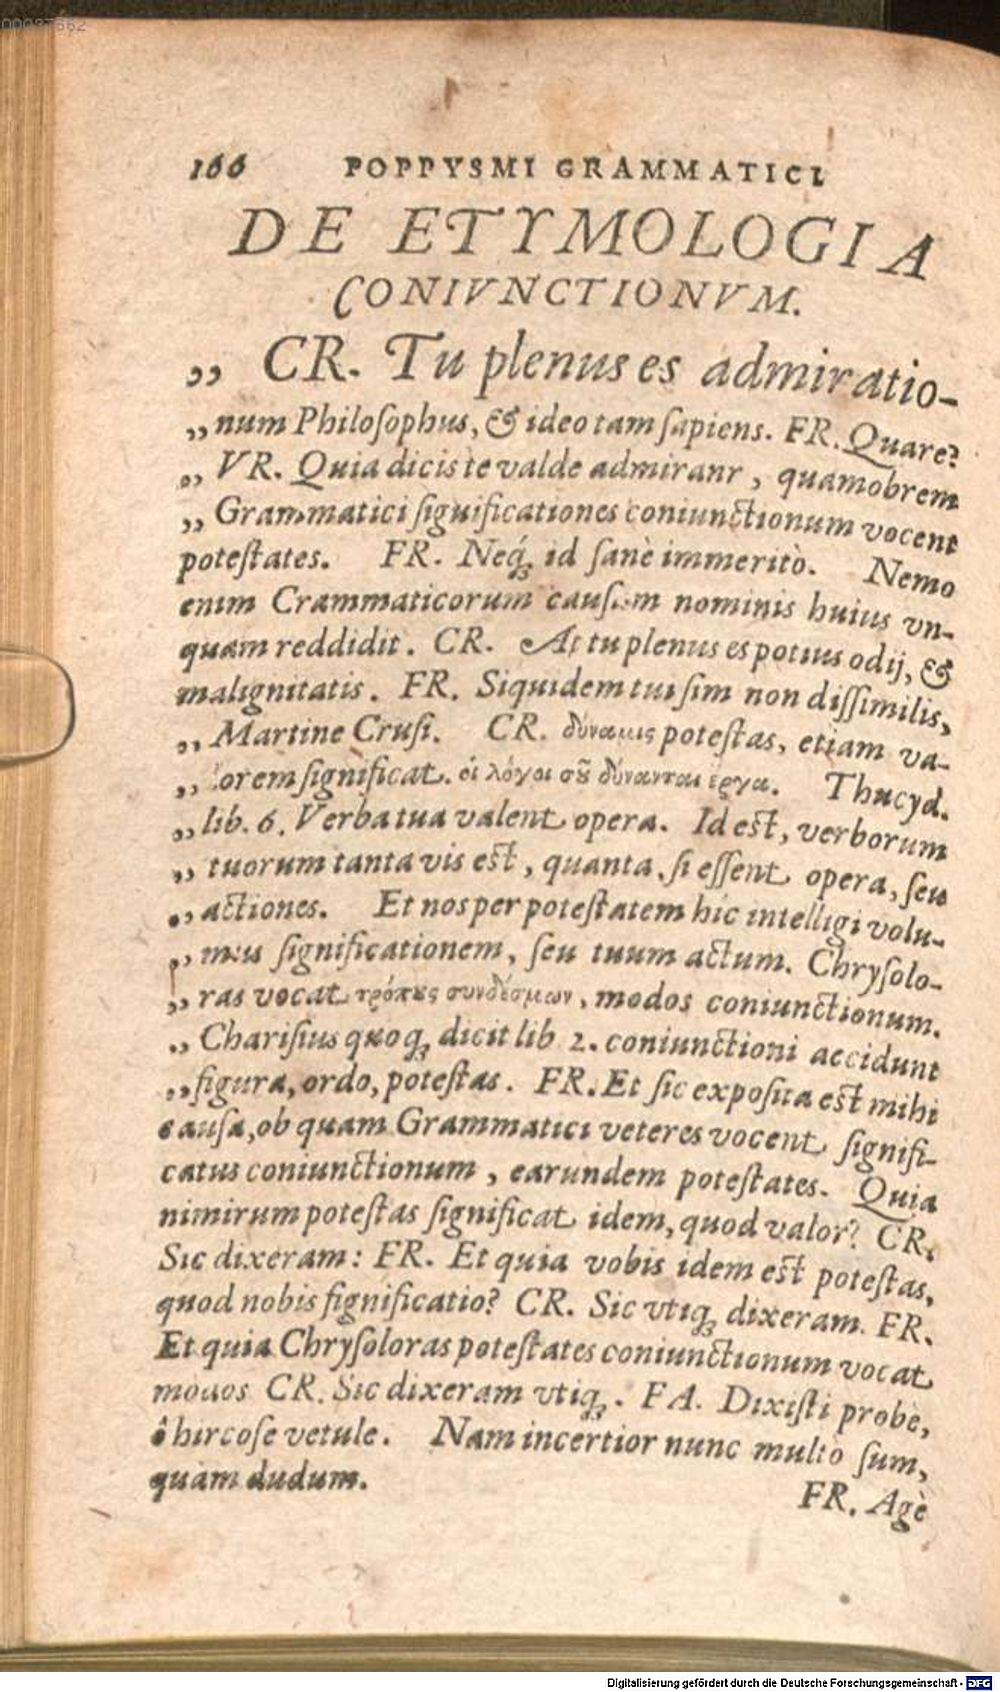 00037662
166 POPPYSMI GRAMMATICI
DE ETYMOLOGIA
CONIVNCTIONVM.
„ CR. Tu plenus es admiratio-
„ num Philoſophus, & ideo tam ſapiens. FR. Quare?
„ VR. Quia dicis te valde admiranr, quamobrem
„ Grammatici ſiguificationes coniunctionum vocent
poteſtates. FR. Neq́; id ſanè immeritò. Nemo
enim Crammaticorum cauſam nominis huius vn-
quam reddidit. CR. At tu plenus es potius odij, &
malignitatis. FR. Siquidem tui ſim non diſſimilis,
„ Martine Cruſi. CR. δύναμις poteſtas, etiam va-
„ lorem ſignificat. οἱ λόγοι σοῦ δύνανται ἔργα. Thucyd.
„ lib. 6. Verba tua valent opera. Id eſt, verborum
„ tuorum tanta vis eſt, quanta, ſi eſſent opera, ſeu
„ actiones. Et nos per poteſtatem hic intelligi volu-
„ mus ſignificationem, ſeu tuum actum. Chryſolo-
„ ras vocat τρόπους συνδέσμων, modos coniunctionum.
„ Chariſius quoq; dicit lib 2. coniunctioni accidunt
„ figura, ordo, poteſtas. FR. Et ſic expoſita eſt mihi
cauſa, ob quam Grammatici veteres vocent ſignifi-
catus coniunctionum, earundem poteſtates. Quia
nimirum poteſtas ſignificat idem, quod valor? CR.
Sic dixeram: FR. Et quia vobis idem eſt poteſtas,
quod nobis ſignificatio? CR. Sic vtiq; dixeram. FR.
Et quia Chryſoloras poteſtates coniunctionum vocat
modos CR. Sic dixeram vtiq;. FA. Dixiſti probè,
ô hircoſe vetule. Nam incertior nunc multò ſum,
quàm dudum.
FR. Agè
Digitalisierung gefördert durch die Deutsche Forschungsgemeinschaft - DFG